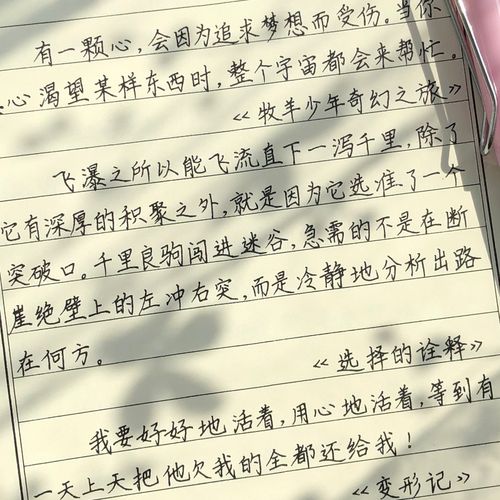 有一颗心，会因为追求梦想而受伤。当你
心渴望某样东西时，整个宇宙都会来帮忙。
《牧羊少年奇幻之旅》
飞瀑之所以能飞流直下一泻千里，除了
它有深厚的积聚之外，就是因为它选准了一个
突破口。千里良驹闯进迷谷，急需的不是在断
崖绝壁上的左冲右突，而是冷静地分析出路
在何方。
《选择的诠释》
我要好好地活着，用心地活着，等到有
一天上天把他欠我的全都还给我！
《变形记》